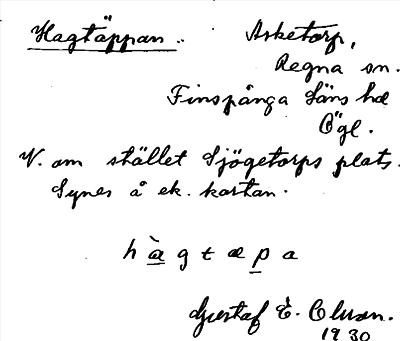 Hagtäppan.
Asketorp,
Regna sn.
Finspånga Läns hd
Ögl.
V. om stället Sjögetorps plats.
Synes å ek. kartan.
h à g t æ p a
Gustaf E. Olsson.
1930